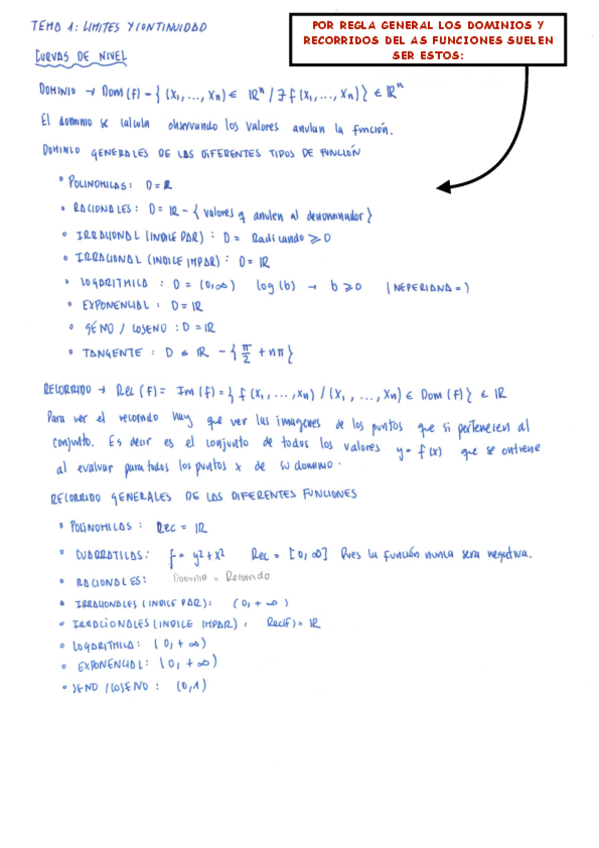 TEMA 1: LIMITES Y CONTINUIDAD
POR REGLA GENERAL LOS DOMINIOS Y
RECORRIDOS DEL AS FUNCIONES SUELEN
SER ESTOS:
CURVAS DE NIVEL
DOMINIO → Dom (f) = { (x₁, ..., xₙ) ∈ ℝⁿ / ∃ f (x₁, ..., xₙ) } ∈ ℝⁿ
El dominio se calcula observando los valores anulan la función.
DOMINIO GENERALES DE LAS DIFERENTES TIPOS DE FUNCIÓN
• POLINOMICAS: D = ℝ
• RACIONALES: D = ℝ - { valores q anulen al denominador }
• IRRACIONAL (INDICE PAR) : D = Radicando ≥ 0
• IRRACIONAL (INDICE IMPAR) : D = ℝ
• LOGARITMICA : D = (0,∞) log (b) → b ≥ 0 (NEPERIANA = )
• EXPONENCIAL : D = ℝ
• SENO / COSENO : D = ℝ
• TANGENTE : D = ℝ - { π/2 + nπ }
RECORRIDO → Rec (f) = Im (f) = { f (x₁, ..., xₙ) / (x₁, ..., xₙ) ∈ Dom (f) } ∈ ℝ
Para ver el recorrido hay que ver las imagenes de los puntos que si pertenecen al
conjunto. Es decir es el conjunto de todos los valores y = f(x) que se obtiene
al evaluar para todos los puntos x de su dominio.
RECORRIDO GENERALES DE LAS DIFERENTES FUNCIONES
• POLINOMICAS : Rec = ℝ
• CUADRATICAS: f = y² + x² Rec = [0, ∞] Pues la función nunca sera negativa.
• RACIONALES: Dominio = Recorrido
• IRRACIONALES (INDICE PAR): (0, + ∞)
• IRRACIONALES (INDICE IMPAR) : Rec(f) = ℝ
• LOGARITMICA: (0, + ∞)
• EXPONENCIAL: (0, + ∞)
• SENO / COSENO : (0,1)